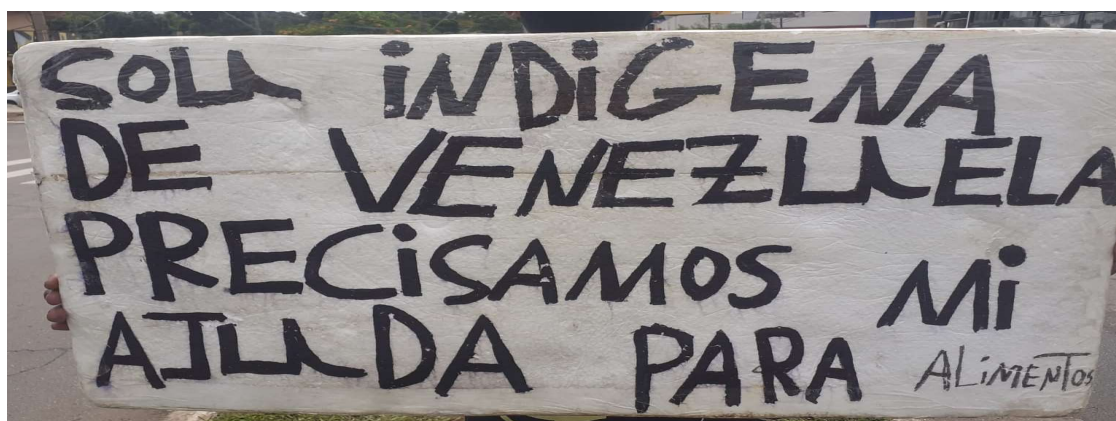 SOU iNDiGENA
DE VENEZUELA
PRECiSAMOS Mi
AJUDA PARA ALiMENTOS